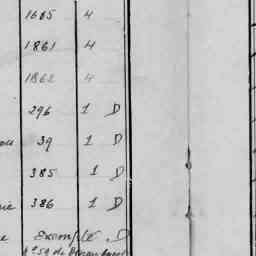 1605 4
1861 4
1862 4
296 1 D
39 1 D
385 1 D
386 1 D
Exemple D